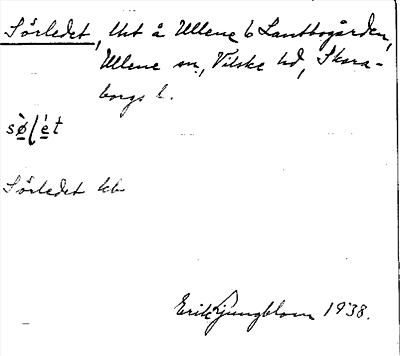 Sörledet, Uut å Ullene 6 Lanttogården,
Ullene sn., Vilske hd, Skara-
borgs l.
sø̀ʃét
Sörledet kb
Erik Ljungblom 1938.